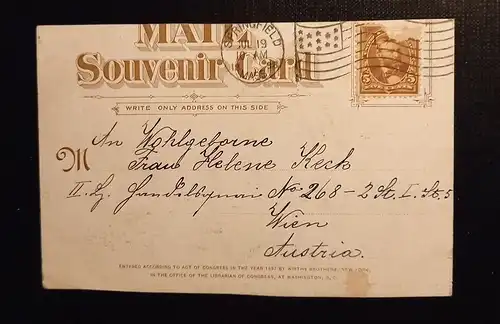 MAIL
Souvenir Card
SPRINGFIELD
JUL 19
MASS
5 5
WRITE ONLY ADDRESS ON THIS SIDE
M An Wohlgeborne
Frau Helene Keck
II. No 268 - 2 St. I. St. 5
Wien
Austria.
ENTERED ACCORDING TO ACT OF CONGRESS IN THE YEAR 1897 BY
IN THE OFFICE OF THE LIBRARIAN OF CONGRESS, AT WASHINGTON, D. C.